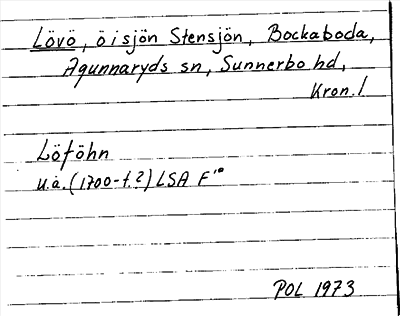 Lövö, ö i sjön Stensjön, Bockaboda,
Agunnaryds sn, Sunnerbo hd,
Kron. l
Löföhn
u.å. (1700-t.?) LSA F 10
POL 1973